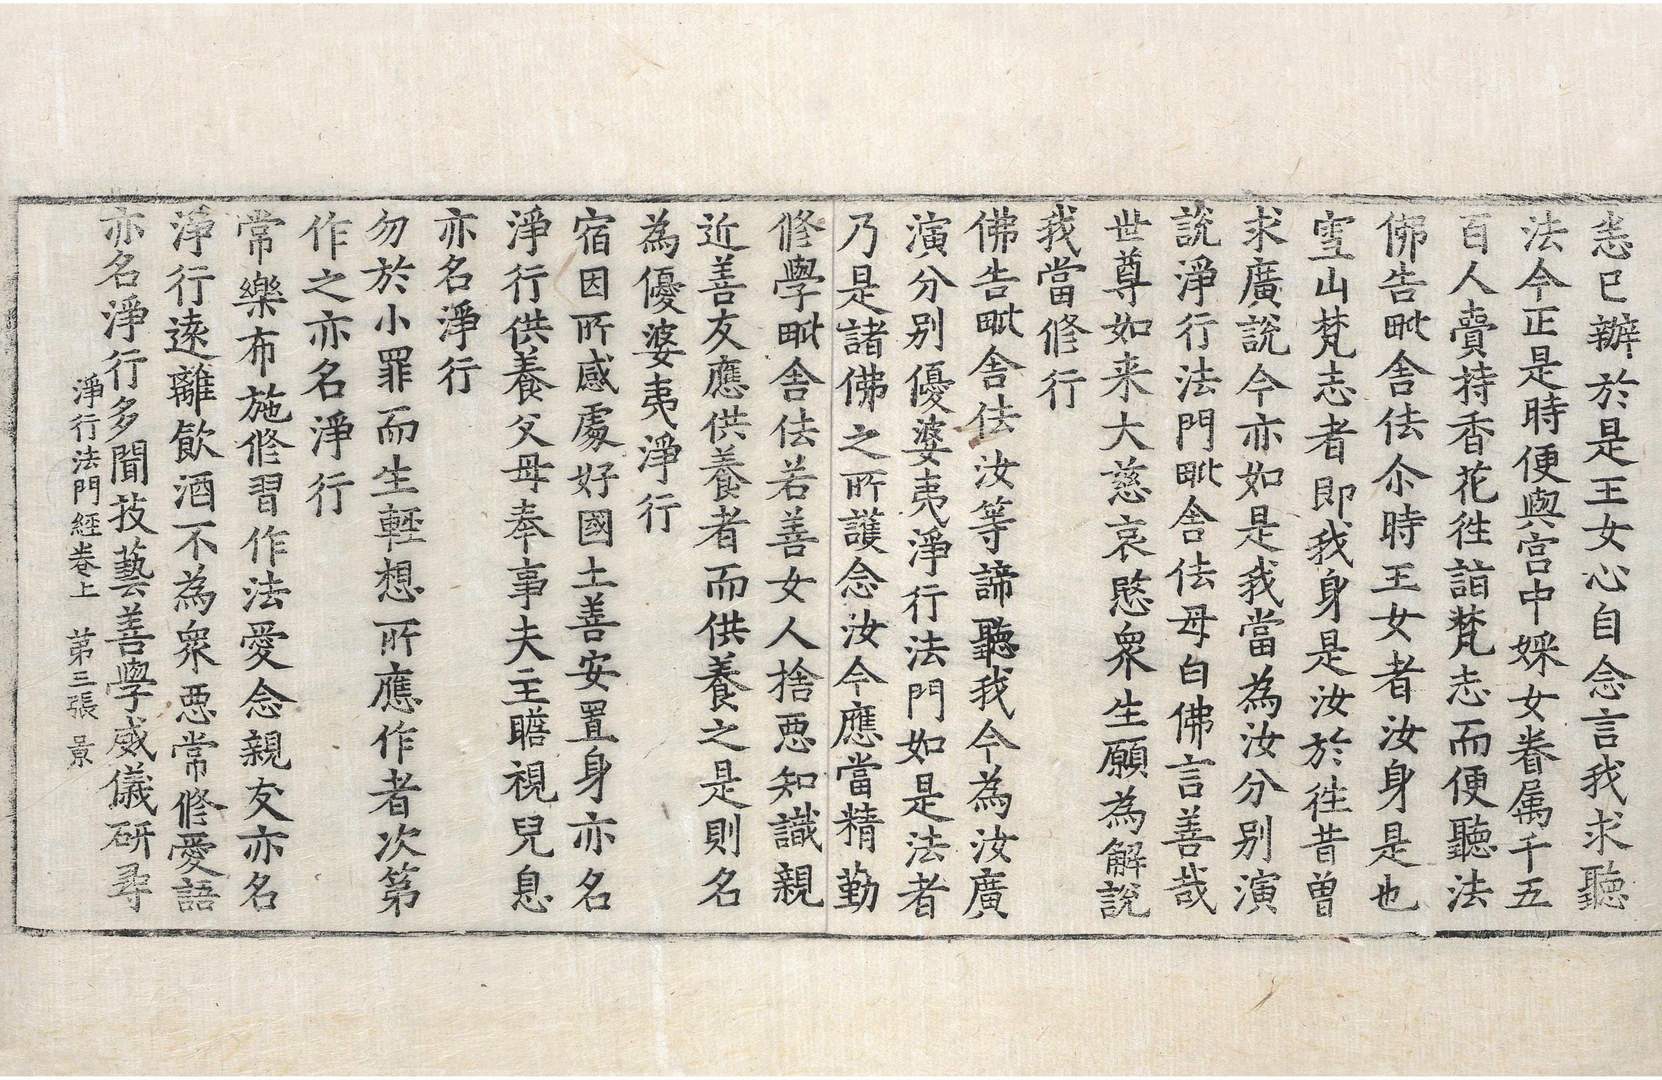 恙已辦於是王女心自念言我求聽
法今正是時便與宫中婇女眷属千五
百人賷持香花徃詣梵志而便聽法
佛告毗舍佉尒時王女者汝身是也
雪山梵志者即我身是汝於徃昔曽
求廣說今亦如是我當為汝分别演
說淨行法門毗舍佉母白佛言善哉
世尊如来大慈哀愍衆生願為解說
我當修行
佛告毗舍佉汝等諦聽我今為汝廣
演分别優婆夷淨行法門如是法者
乃是諸佛之所護念汝今應當精勤
修學毗舍佉若善女人捨悪知識親
近善友應供養者而供養之是則名
為優婆夷淨行
宿因所感處好國土善安置身亦名
淨行供養父母奉事夫主瞻視兒息
亦名淨行
勿於小罪而生輕想所應作者次第
作之亦名淨行
常樂布施修習作法愛念親友亦名
淨行遠離飲酒不為衆悪常修愛語
亦名淨行多聞技藝善學威儀研尋
淨行法門經卷上　第三張　景